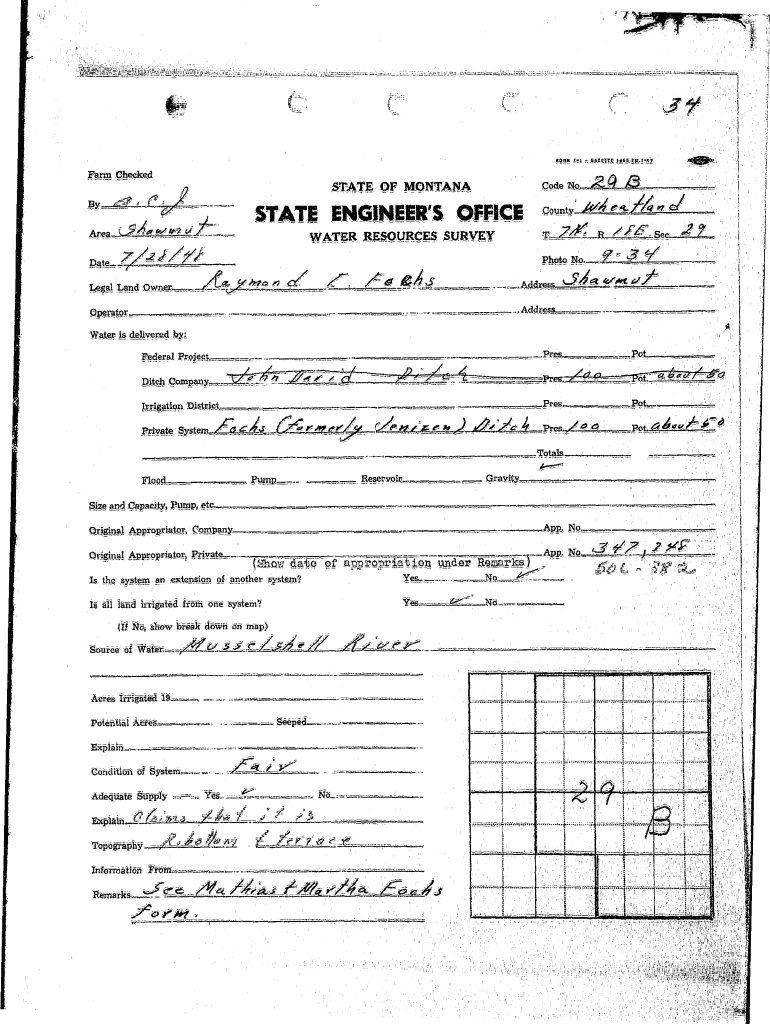 34
Farm Checked
STATE OF MONTANA
Code No. 29 B
By A.C.J
STATE ENGINEER'S OFFICE
County Wheatland
Area Shawmut
WATER RESOURCES SURVEY
T 7N. R 18E. Sec. 29
Date 7/28/48
Photo No. 9-34
Legal Land Owner Raymond E. Fochs Address Shawmut
Operator Address
Water is delivered by:
Federal Project Pres. Pot.
Ditch Company John David Ditch Pres. 100 Pot. about 50
Irrigation District Pres. Pot.
Private System Fochs (formerly Jenizen) Ditch Pres. 100 Pot. about 50
Totals
Flood Pump Reservoir Gravity ✓
Size and Capacity, Pump, etc.
Original Appropriator, Company App. No.
Original Appropriator, Private App. No. 347, 348
(Show date of appropriation under Remarks)
Is the system an extension of another system? Yes No ✓
Is all land irrigated from one system? Yes ✓ No
(If No, show break down on map)
Source of Water Musselshell River
Acres Irrigated 19
Potential Acres Seeped
Explain
Condition of System Fair
Adequate Supply Yes ✓ No
29
Explain Claims that it is
B
Topography R. bottom & terrace
Information From
Remarks See Mathias & Martha Fochs
form.